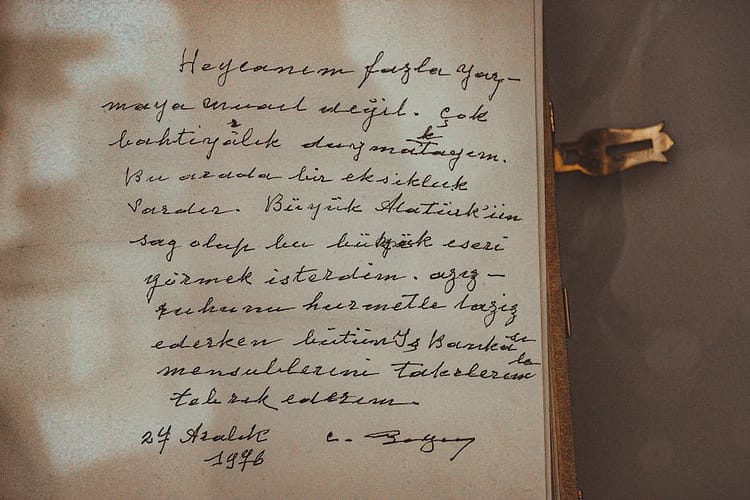 Heycanım fazla yaz-
maya müait değil. Çok
bahtiyarlık duymaktayım.
Bu arada bir eksiklik
vardır. Büyük Atatürk'ün
sag olup bu büyük eseri
görmek isterdim. aziz-
ruhunu hurmetle taziz
ederken bütün İş Bankası
mensublerini takdirlerimle
tebrik ederim.
24 Aralık C. Bayar
1976